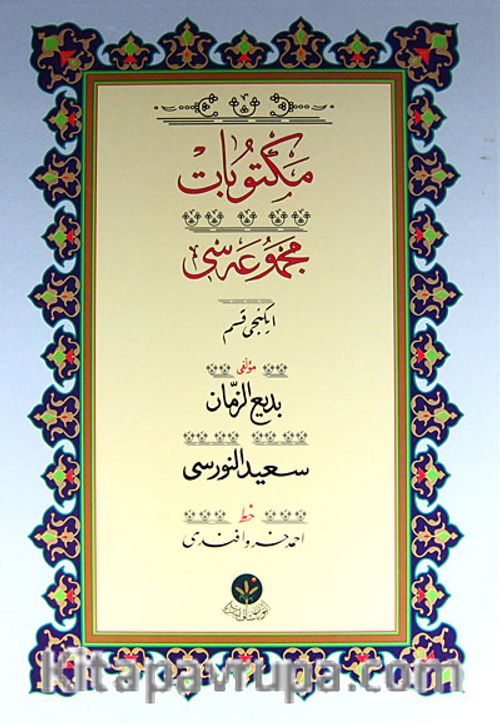 مَكْتُوبَاتْ
مَجْمُوعَه سِى
ايكنجى قسم
مؤلفى
بديع الزّمان
سعيد النورسى
خط
احمد خسرو افندى
kitapavrupa.com